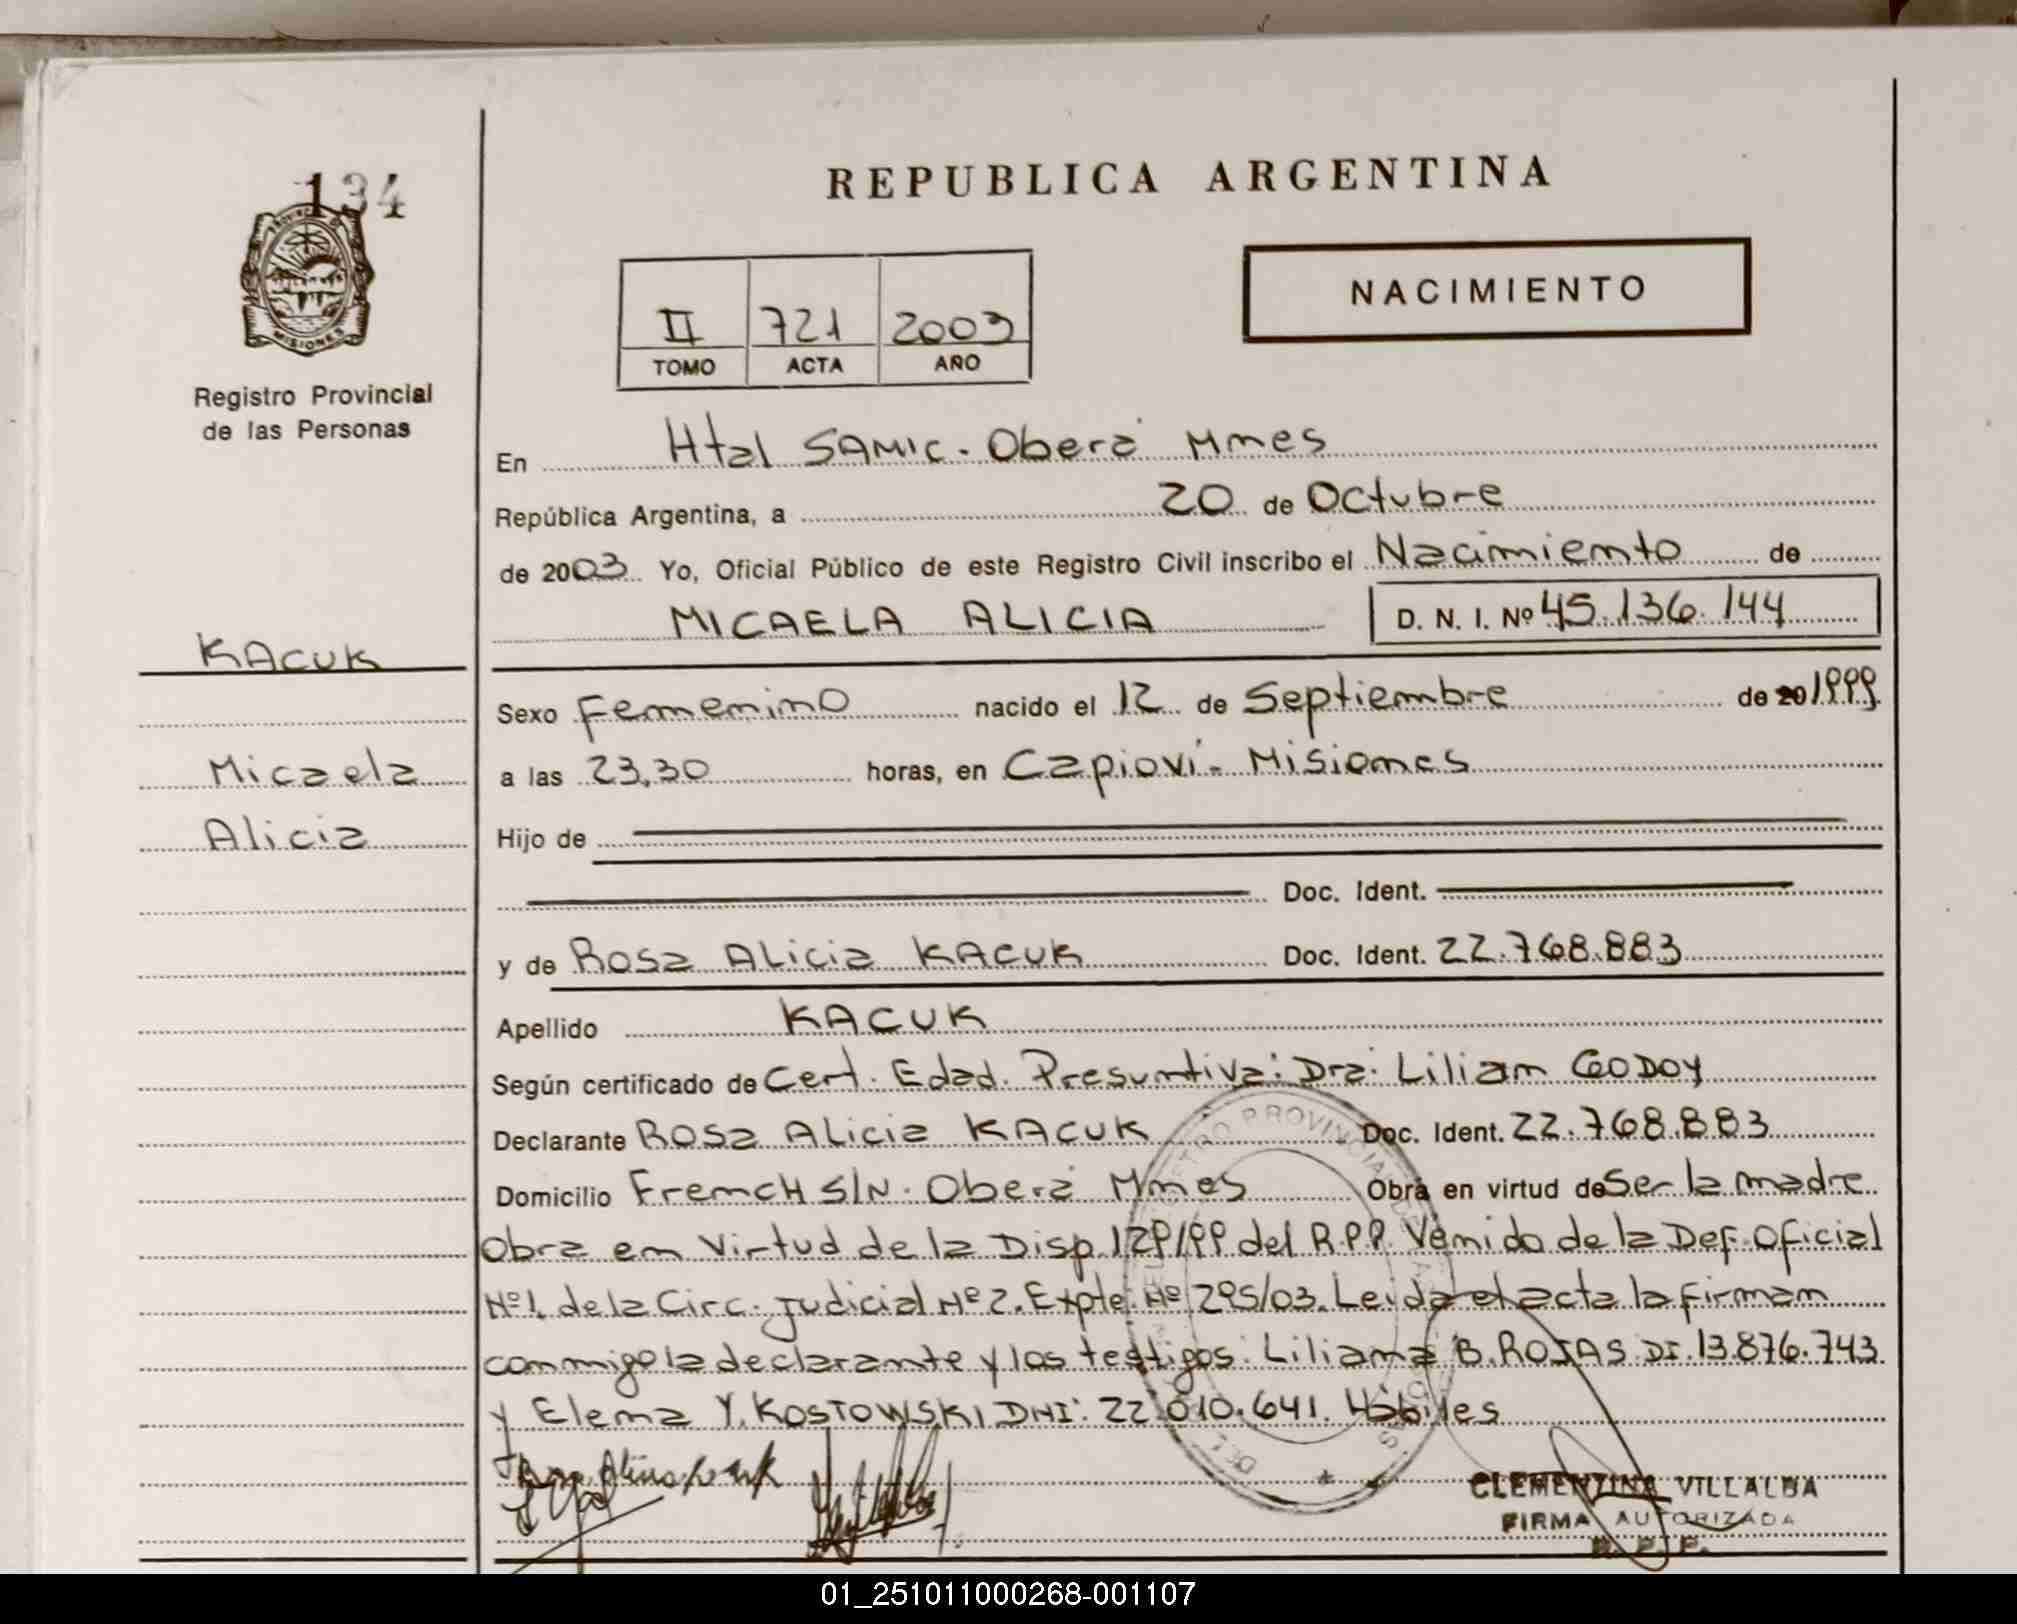 134
PROVINCIA DE
MISIONES
Registro Provincial
de las Personas
REPUBLICA ARGENTINA
NACIMIENTO
II 721 2003
TOMO ACTA AÑO
En Htal SAMIC. Oberá Mnes
República Argentina, a 20 de Octubre
de 2003 Yo, Oficial Público de este Registro Civil inscribo el Nacimiento de
MICAELA ALICIA D. N. I. Nº 45.136.144
KACUK
Sexo Femenino nacido el 12 de Septiembre de 20 1999
Micaela
a las 23,30 horas, en Capioví - Misiones
Alicia
Hijo de
Doc. Ident.
y de Rosa Alicia KACUK Doc. Ident. 22.768.883
Apellido KACUK
Según certificado de Cert. Edad. Presuntiva: Dra: Lilian GODOY
Declarante Rosa Alicia KACUK Doc. Ident. 22.768.883
Domicilio FrencH S/N. Oberá Mnes Obra en virtud de Ser la madre
Obra en virtud de la Disp. 129/99 del R.P.P. Venido de la Def. Oficial
Nº1. de la Circ. Judicial Nº 2. Expte. Nº 295/03. Leida el acta la firman
conmigo la declarante y los testigos: Liliana B. ROJAS DI. 13.876.743
y Elena Y. KOSTOWSKI DNI: 22.010.641. Hábiles
CLEMENTINA VILLALBA
FIRMA AUTORIZADA
R. P. P.
01_251011000268-001107